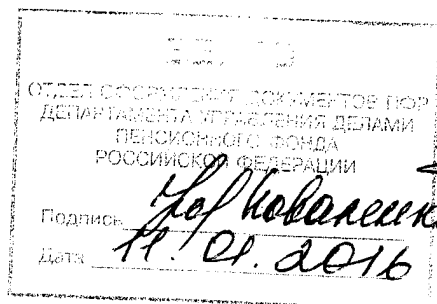 ОТДЕЛ ДОКУМЕНТОВ ПФР
ДЕПАРТАМЕНТА УПРАВЛЕНИЯ ДЕЛАМИ
ПЕНСИОННОГО ФОНДА
РОССИЙСКОЙ ФЕДЕРАЦИИ
Подпись
Дата 11.01.2016